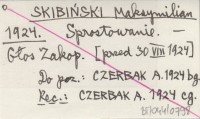 SKIBIŃSKI Maksymilian
1924. Sprostowanie. —
Głos Zakop. [przed 30 VIII 1924]
Do poz.: CZERBAK A. 1924 bg.
Rec.: CZERBAK A. 1924 cg.